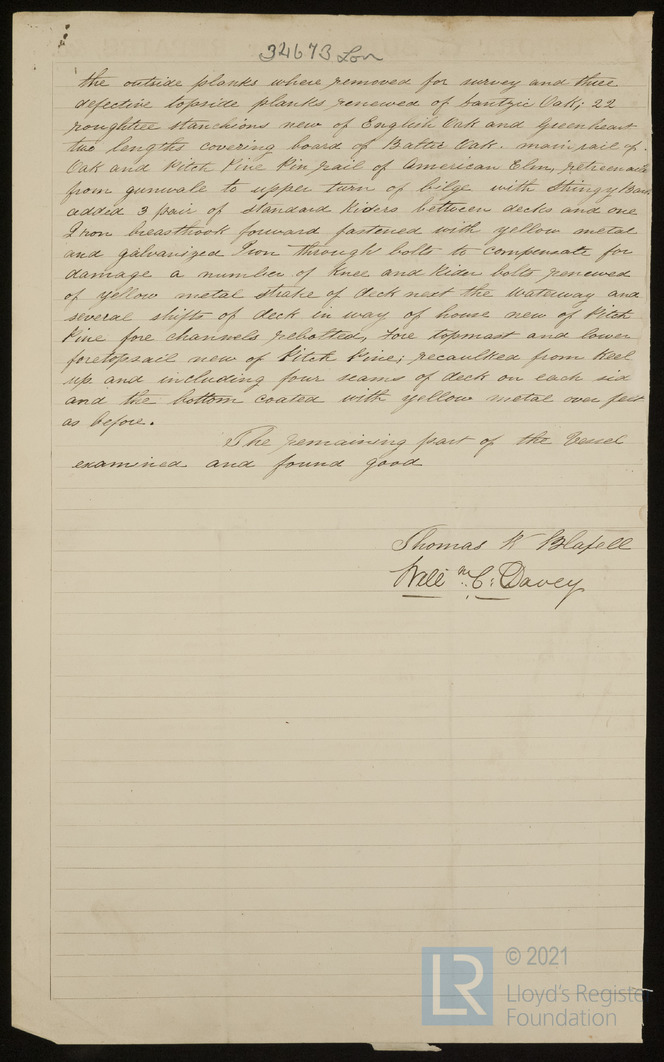 34673 Lon
the outside planks where removed for survey and three
defective topside planks renewed of Dantzic Oak; 22
roughtree stanchions new of English Oak and Greenheart
two lengths covering board of Baltic Oak. main rail of
Oak and Pitch Pine Pin rail of American Elm, retreenailed
from gunwale to upper turn of bilge with Stringy Bark
added 3 pair of standard Riders between decks and one
Iron breasthook forward fastened with yellow metal
and galvanized Iron through bolts to compensate for
damage a number of Knee and Rider bolts renewed
of yellow metal strake of deck next the waterway and
several shifts of deck in way of house new of Pitch
Pine fore channels rebolted, Fore topmast and lower
foretopsail new of Pitch Pine; recaulked from Keel
up and including four seams of deck on each side
and the bottom coated with yellow metal over felt
as before.
The remaining part of the Vessel
examined and found good
Thomas W Blafell
Will m C. Davey
LR
© 2021
Lloyd's Register
Foundation